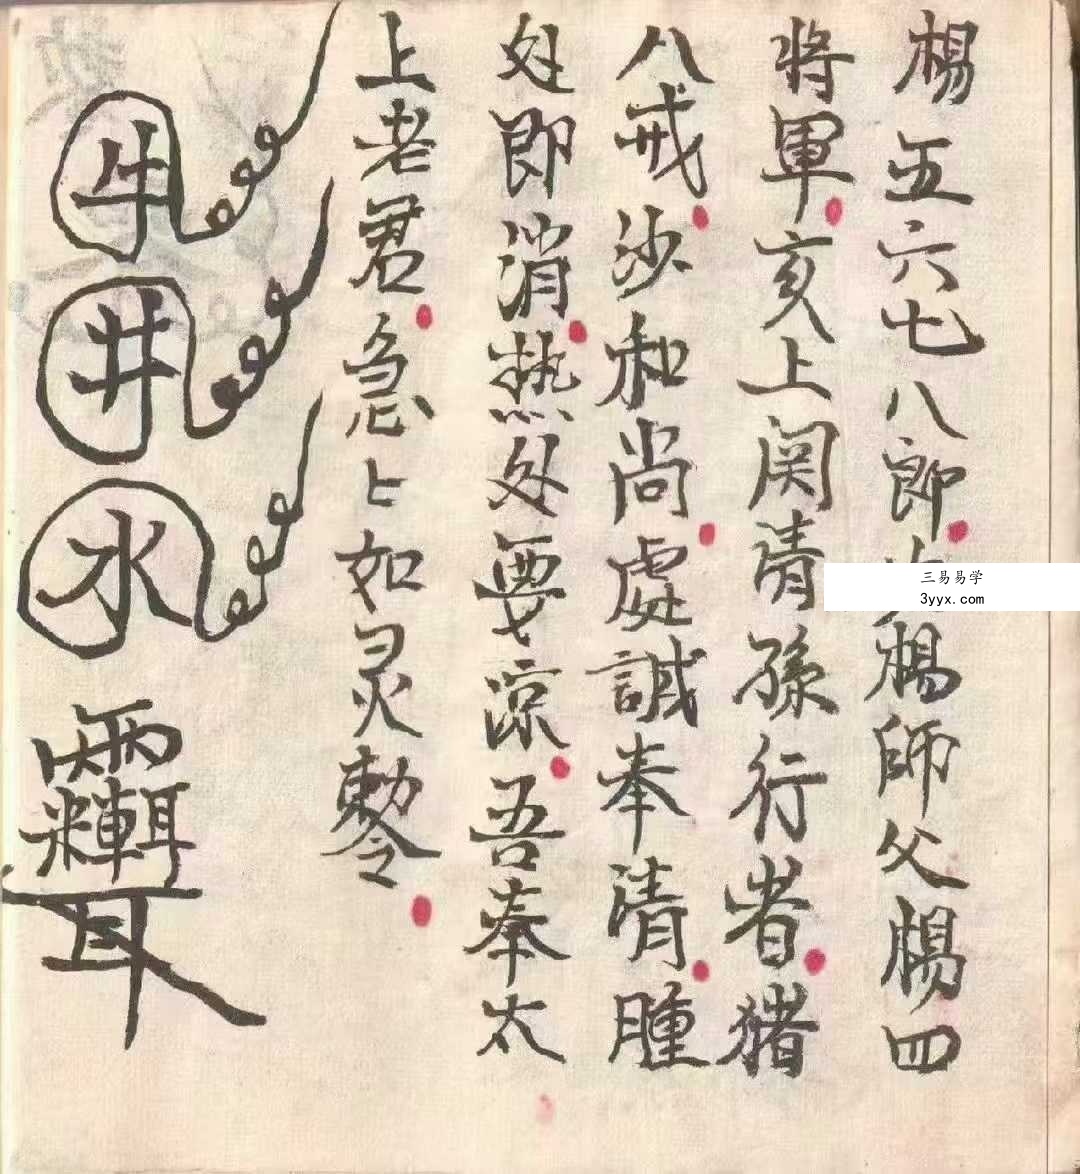 楊五六七八郎楊師父楊四
將軍亥上関清孫行者猪
八戒沙和尚處誠奉清腫
处即消热处要凉吾奉太
上老君急〻如灵勅令
牛
井
水
三易易学
3yyx.com